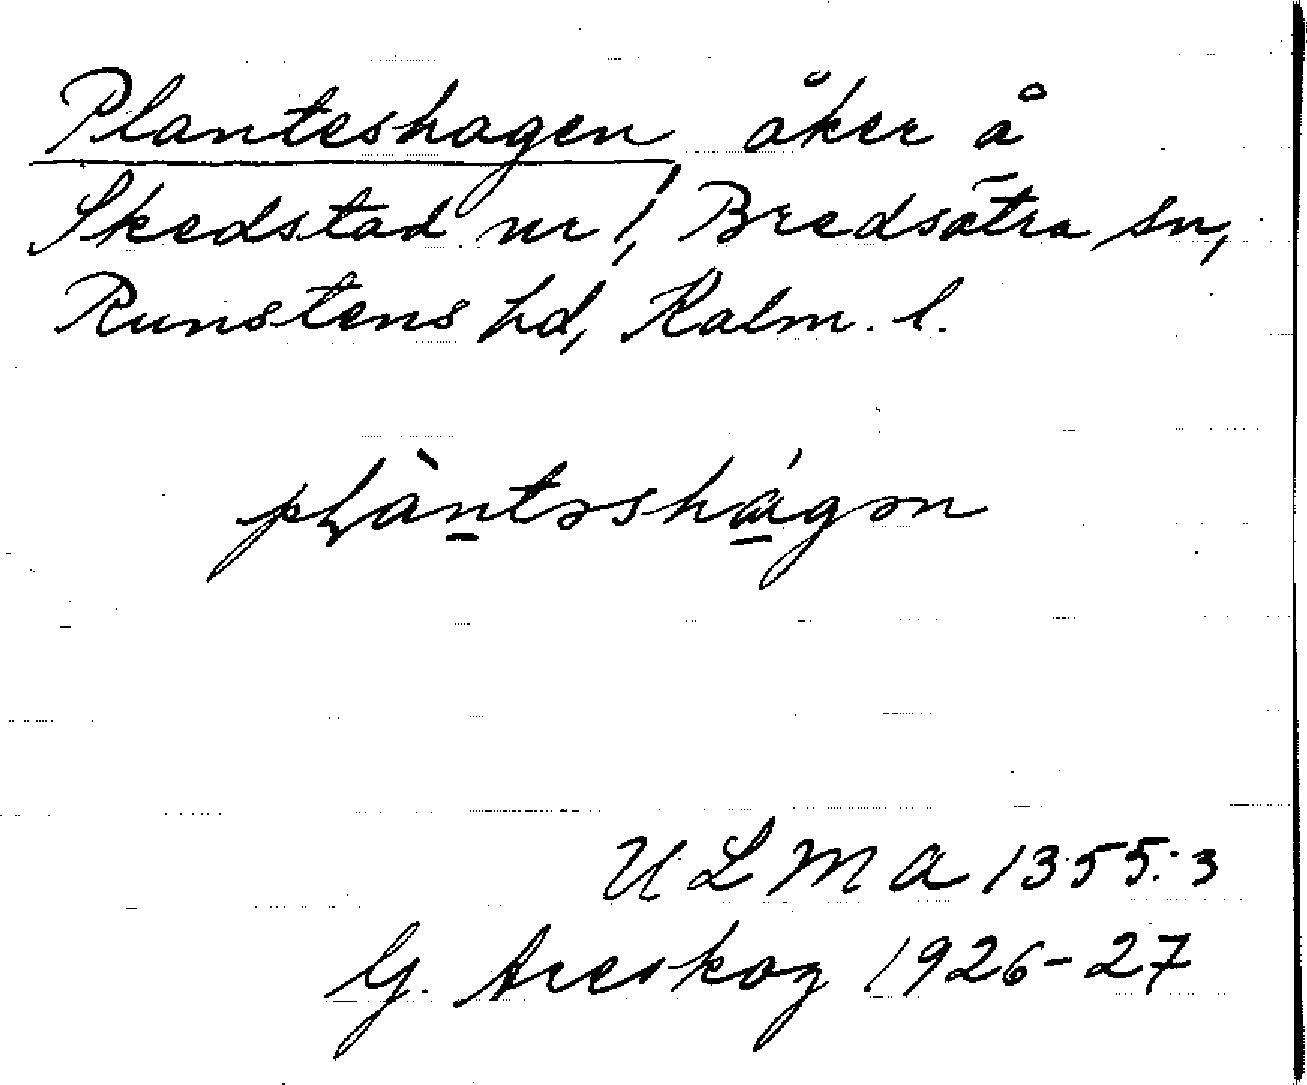 Planteshagen åker å
Skedstad nr 1, Bredsätra sn,
Runstens hd, Kalm. l.
plàntəshágən
ULMA 1355:3
G. Areskog 1926-27